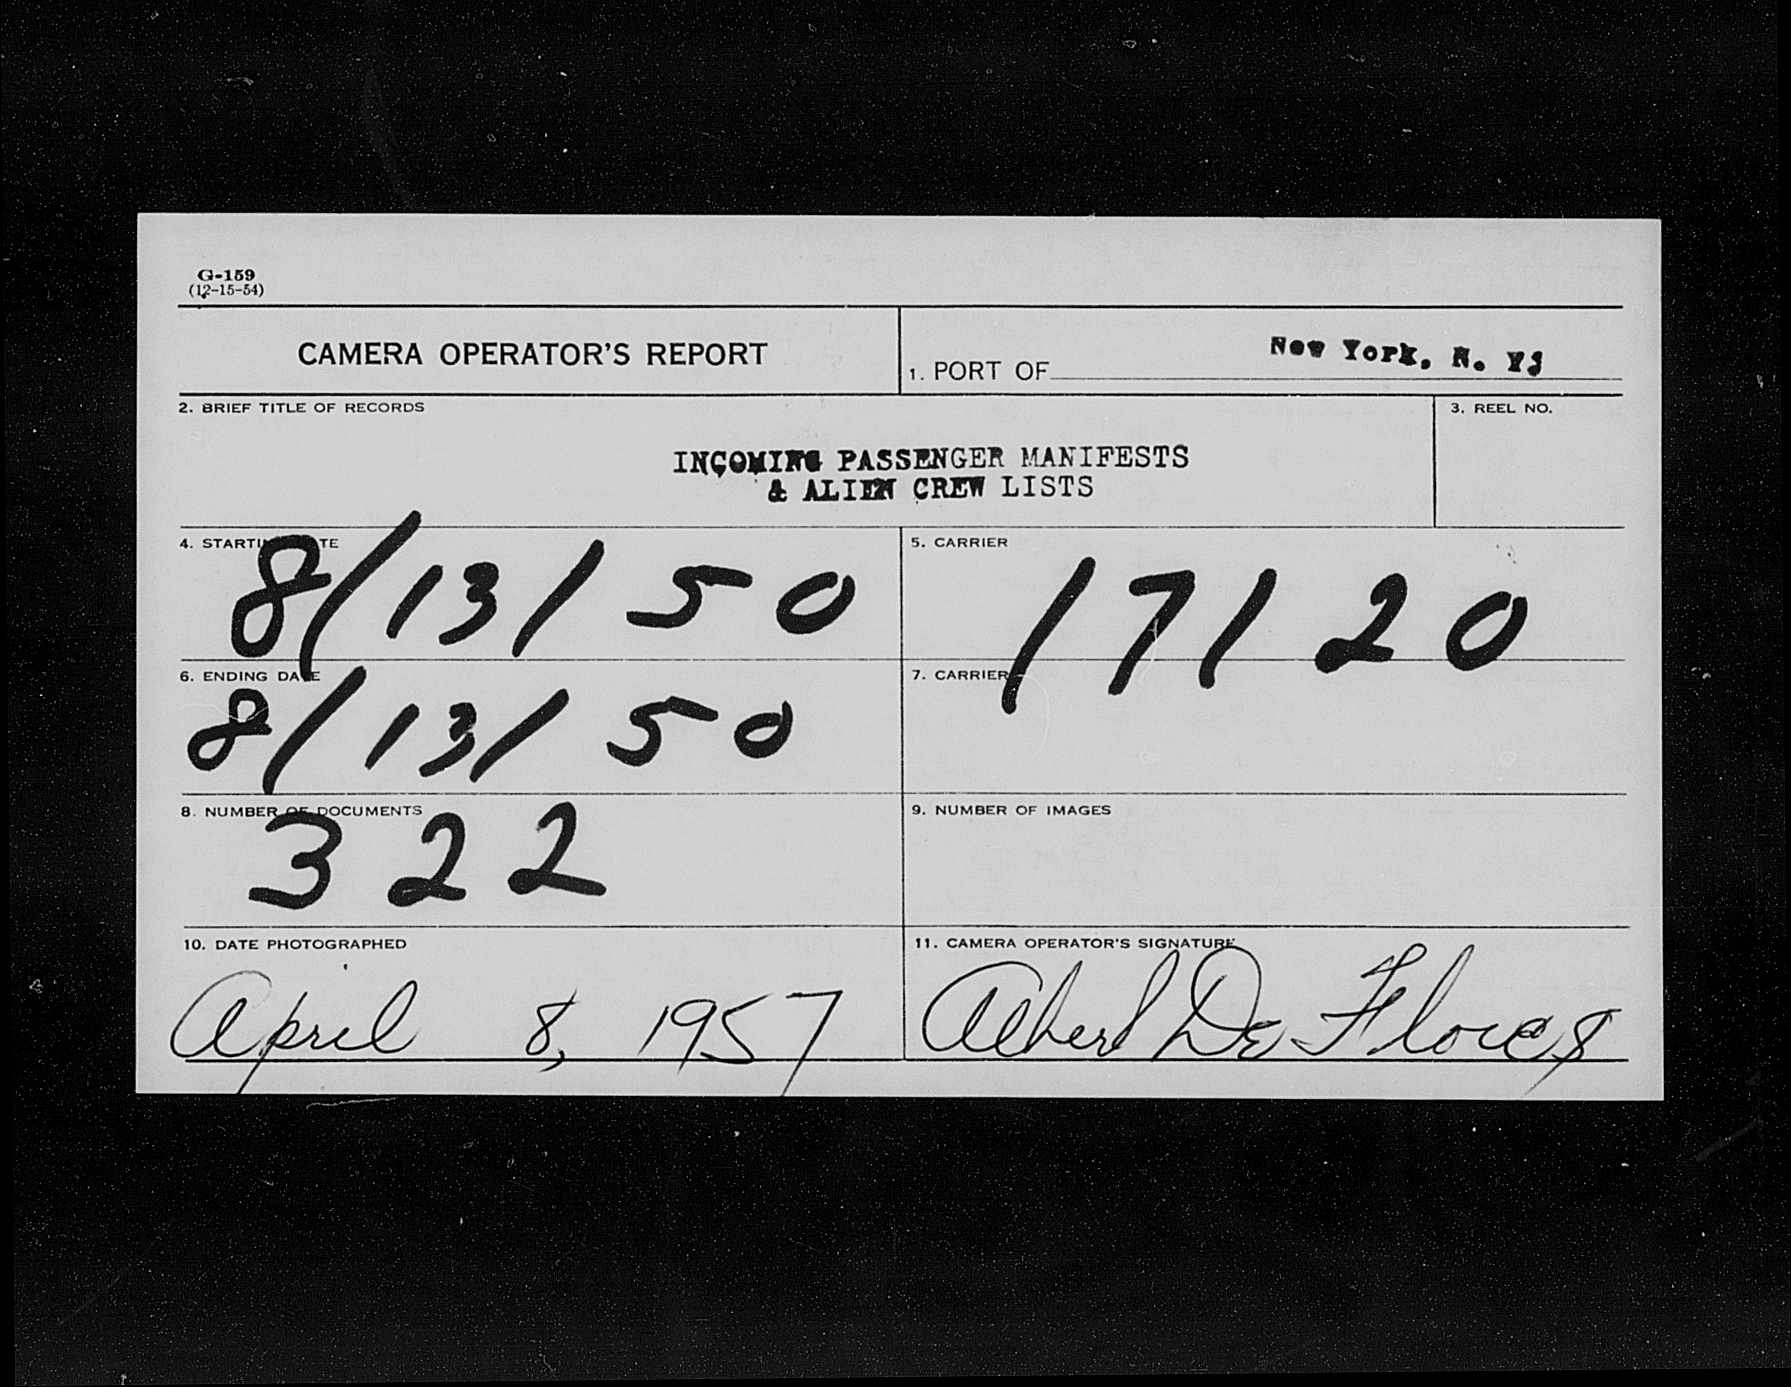 G-159
(12-15-54)
CAMERA OPERATOR'S REPORT
1. PORT OF New York, N. Y.
2. BRIEF TITLE OF RECORDS
3. REEL NO.
INCOMING PASSENGER MANIFESTS
& ALIEN CREW LISTS
4. STARTING DATE
8/13/50
5. CARRIER
17120
6. ENDING DATE
8/13/50
7. CARRIER
8. NUMBER OF DOCUMENTS
322
9. NUMBER OF IMAGES
10. DATE PHOTOGRAPHED
April 8, 1957
11. CAMERA OPERATOR'S SIGNATURE
Albert De Flores